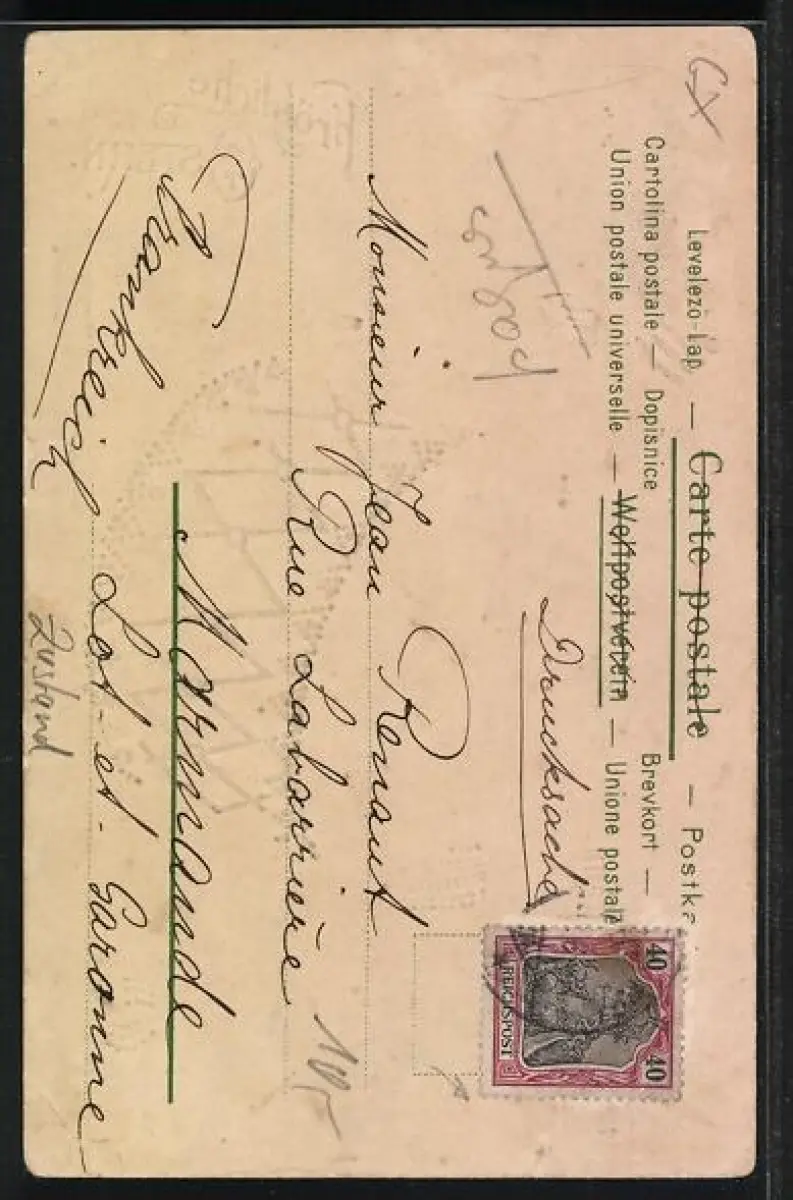 Levelezö-Lap — Carte postale — Postk
Cartolina postale — Dopisnice Brevkort —
Union postale universelle — Weltpostverein — Unione postale
Drucksache
40 40
REICHSPOST
Monsieur Jean Renaut
Rue Labarrière
Marmande
Lot-et-Garonne
Frankreich
Zustand